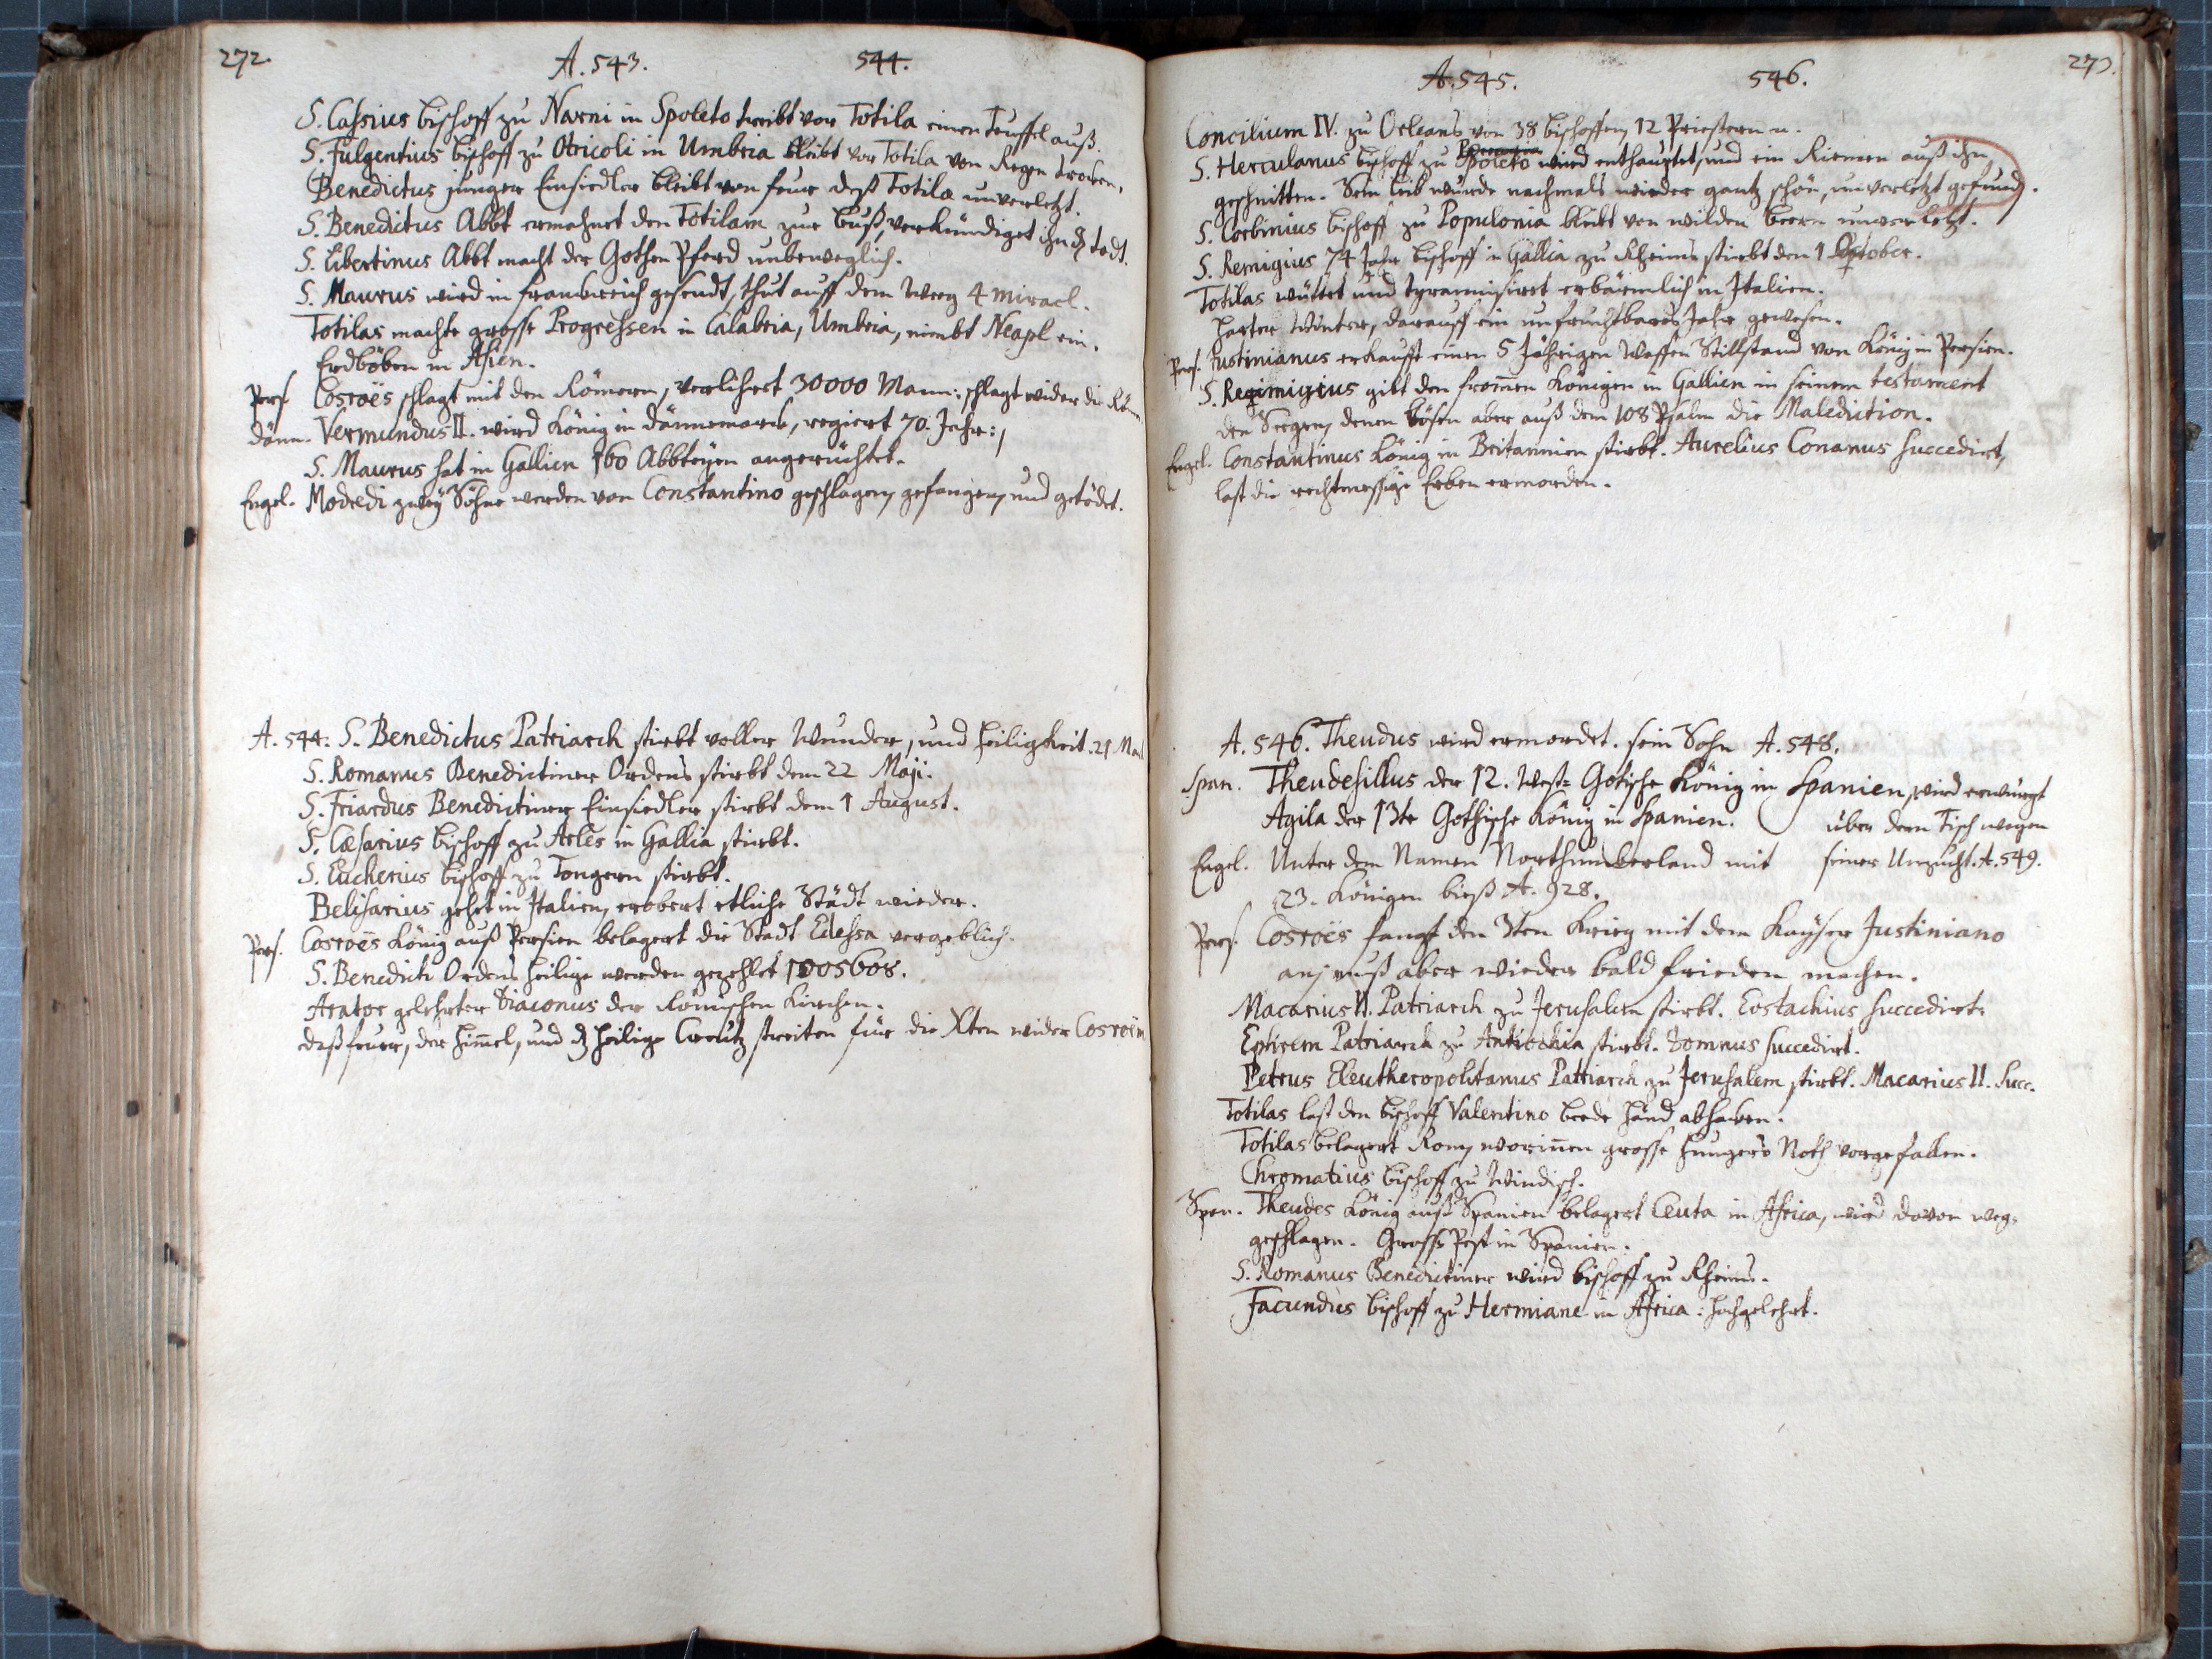 272.
A. 543. 544.
S. Cassius bischoff zu Narni in Spoleto treibt vor Totila einen Teuffel auß.
S. Fulgentius bischoff zu Otricoli in Umbria bleibt vor Totila von Regen trocken.
Benedictus junger Einsiedler bleibt von feur deß Totila unverletzt.
S. Benedictus Abbt ermahnet den Totilam zur buß, verkündiget ihm den todt.
S. Libertinus Abbt macht der Gothen Pferd unbeweglich.
S. Maurus wird in franckreich gesendt, thut auff dem Weeg 4 miracl.
Totilas machte grosse Progressen in Calabria, Umbria, nimbt Neapl ein.
Erdböben in Asien.
Pers. Cosroës schlagt mit den Römern, verlihret 30000 Mann: schlagt wider die Römer
dänn. Vermundus II. wird König in dännemarck, regiert 70. Jahr:
S. Maurus hat in Gallien 160 Abbteyen angerichtet.
Engel. Modredi zwey Söhne werden von Constantino geschlagen, gefangen, und getödet.
A. 544. S. Benedictus Patriarch stirbt voller Wunder, und heiligkeit. 21
S. Romanus Benedictiner Ordens stirbt den 22 Maji.
S. Friardus Benedictiner Einsiedler stirbt dem 1 August.
S. Cæsarius bischoff zu Arles in Gallia stirbt.
S. Eucherius bischoff zu Tongern stirbt.
Belisarius gehet in Italien, erobert etliche Städt wieder.
Pers. Cosroës König auß Persien belagert die Stadt Edessa vergeblich.
S. Benedicti Ordens heilige werden gezehlet 1005608.
Arator gelehrter Diaconus der Römischen Kirchen.
daß feuer, der himmel, und dz heilige Creutz streiten für die Xten wider Cosroëm
273.
A. 545. 546.
Concilium IV. zu Orleans von 38 bischoffen, 12 Priestern
S. Herculanus bischoff zu Spoleto wird enthauptet, und ein Riemen auß ihm
geschnitten. Sein leib wurde nachmals wieder gantz schön, unverletzt gefunden.
S. Corbinius bischoff zu Populonia bleibt von wilden beern unverletzt.
S. Remigius 74 Jahr bischoff in Gallia zu Rheims stirbt den 1 October.
Totilas wüttet und tyrannisiret erbärmlich in Italien.
harter Winter, darauff ein unfruchtbares Jahr gewesen.
Pers. Justinianus erkaufft einen 5 Jährigen Waffen Stillstand von König in Persien.
S. Remigius gibt den frommen Königen in Gallien in seinem testament
den Seegen, denen bösen aber auß dem 108 Psalm die Malediction.
Engel. Constantinus König in Britannien stirbt. Aurelius Conanus succedirt,
last die rechtmessige Erben ermorden.
A. 546. Theudus wird ermordet. sein Sohn A. 548.
Span. Theudesillus der 12. West-Gotische König in Spanien, wird erwürgt
Agila der 13te Gothische König in Spanien. über dem Tisch wegen
Engel. Unter dem Namen Northumberland mit seiner Unzucht. A. 549.
23. Königen bieß A. 928.
Pers. Cosroës fangt den 3ten Krieg mit dem Kayser Justiniano
an, muß aber wieder bald frieden machen.
Macarius II. Patriarch zu Jerusalem stirbt. Eostachius succedirt.
Ephrem Patriarch zu Antiochia stirbt. Domnus succedirt.
Petrus Eleutheropolitanus Patriarch zu Jerusalem stirbt. Macarius II. succ.
Totilas last den bischoff Valentino beede händ abhawen.
Totilas belagert Rom, worinnen grosse hungers Noth vorgefallen.
Chromatius bischoff zu Windisch.
Span. Theudes König auß Spanien belagert Ceuta in Africa, wird davon weg-
geschlagen. Grosse Pest in Spanien.
S. Romanus Benedictiner wird bischoff zu Rheims.
Facundus bischoff zu Hermiane in Africa: hochgelehrt.